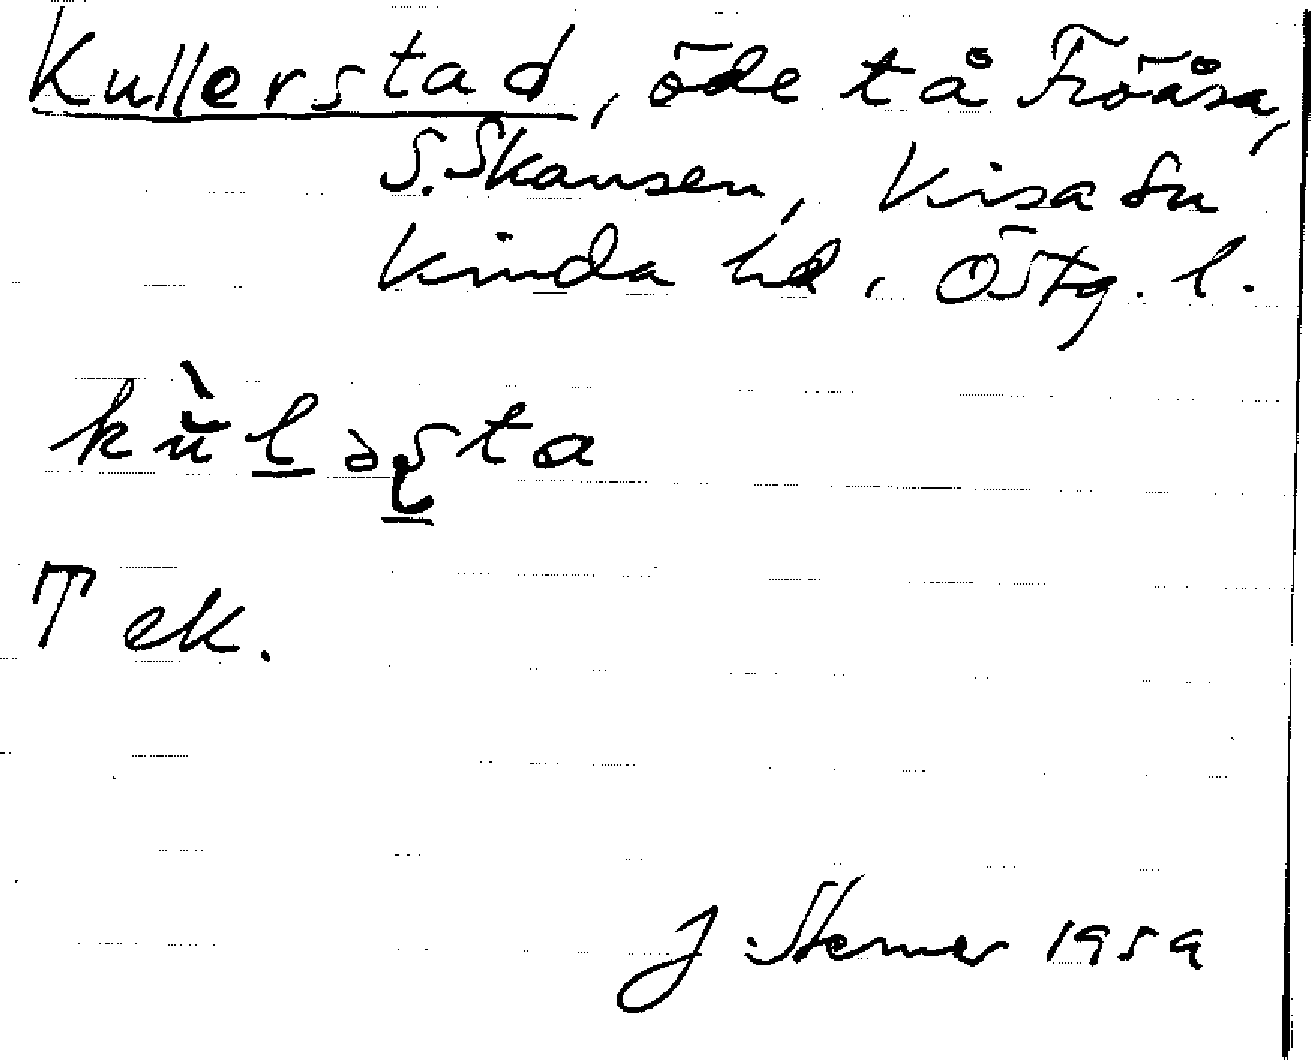 Kullerstad, öde tå Fröåsa,
S. Skansen, Kisa sn
Kinda hd, Östg. l.
kùləʂta
T ek.
J. Stemer 1959